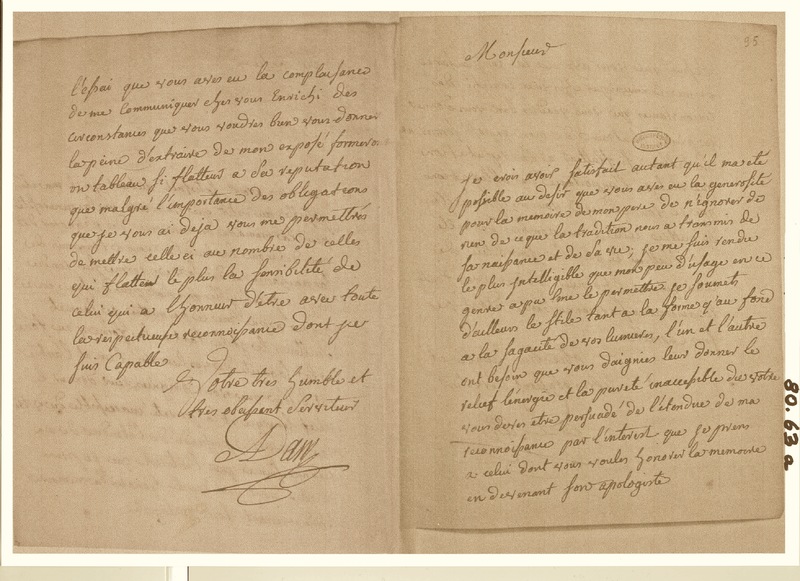 95
Monsieur
Je crois avoir satisfait autant qu'il m'a été
possible au desir que vous aves eu la generosité
pour la memoire de mon pere de n'ignorer de
rien de ce que la tradition nous a transmis de
sa naissance et de sa vie; je me suis rendu
le plus Intelligible que mon peu d'usage en ce
genre a pu me le permettre je soumets
d'ailleurs le stile tant a la forme q'au fond
a la sagacité de vos lumieres, l'un et l'autre
ont besoin que vous daignies leur donner le
relief l'énergie et la pureté inaccessible du votre
vous deves etre persuadé de l'étendue de ma
reconnoissance par l'interest que je prens
a celui dont vous voules honorer la memoire
en devenant son apologiste
l'essai que vous aves eu la complaisance
de me Communiquer ches vous Enrichi des
circonstances que vous voudres bien vous donner
la peine d'extraire de mon exposé formera
un tableau si flatteur a sa reputation
que malgré l'importance des obligations
que je vous ai deja vous me permettrés
de mettre celle ci au nombre de celles
qui flattent le plus la sensibilité de
celui qui a l'honneur d'être avec toute
la respectueuse reconnoissance dont je
suis Capable
Votre très humble et
tres obeissant Serviteur
80.63a